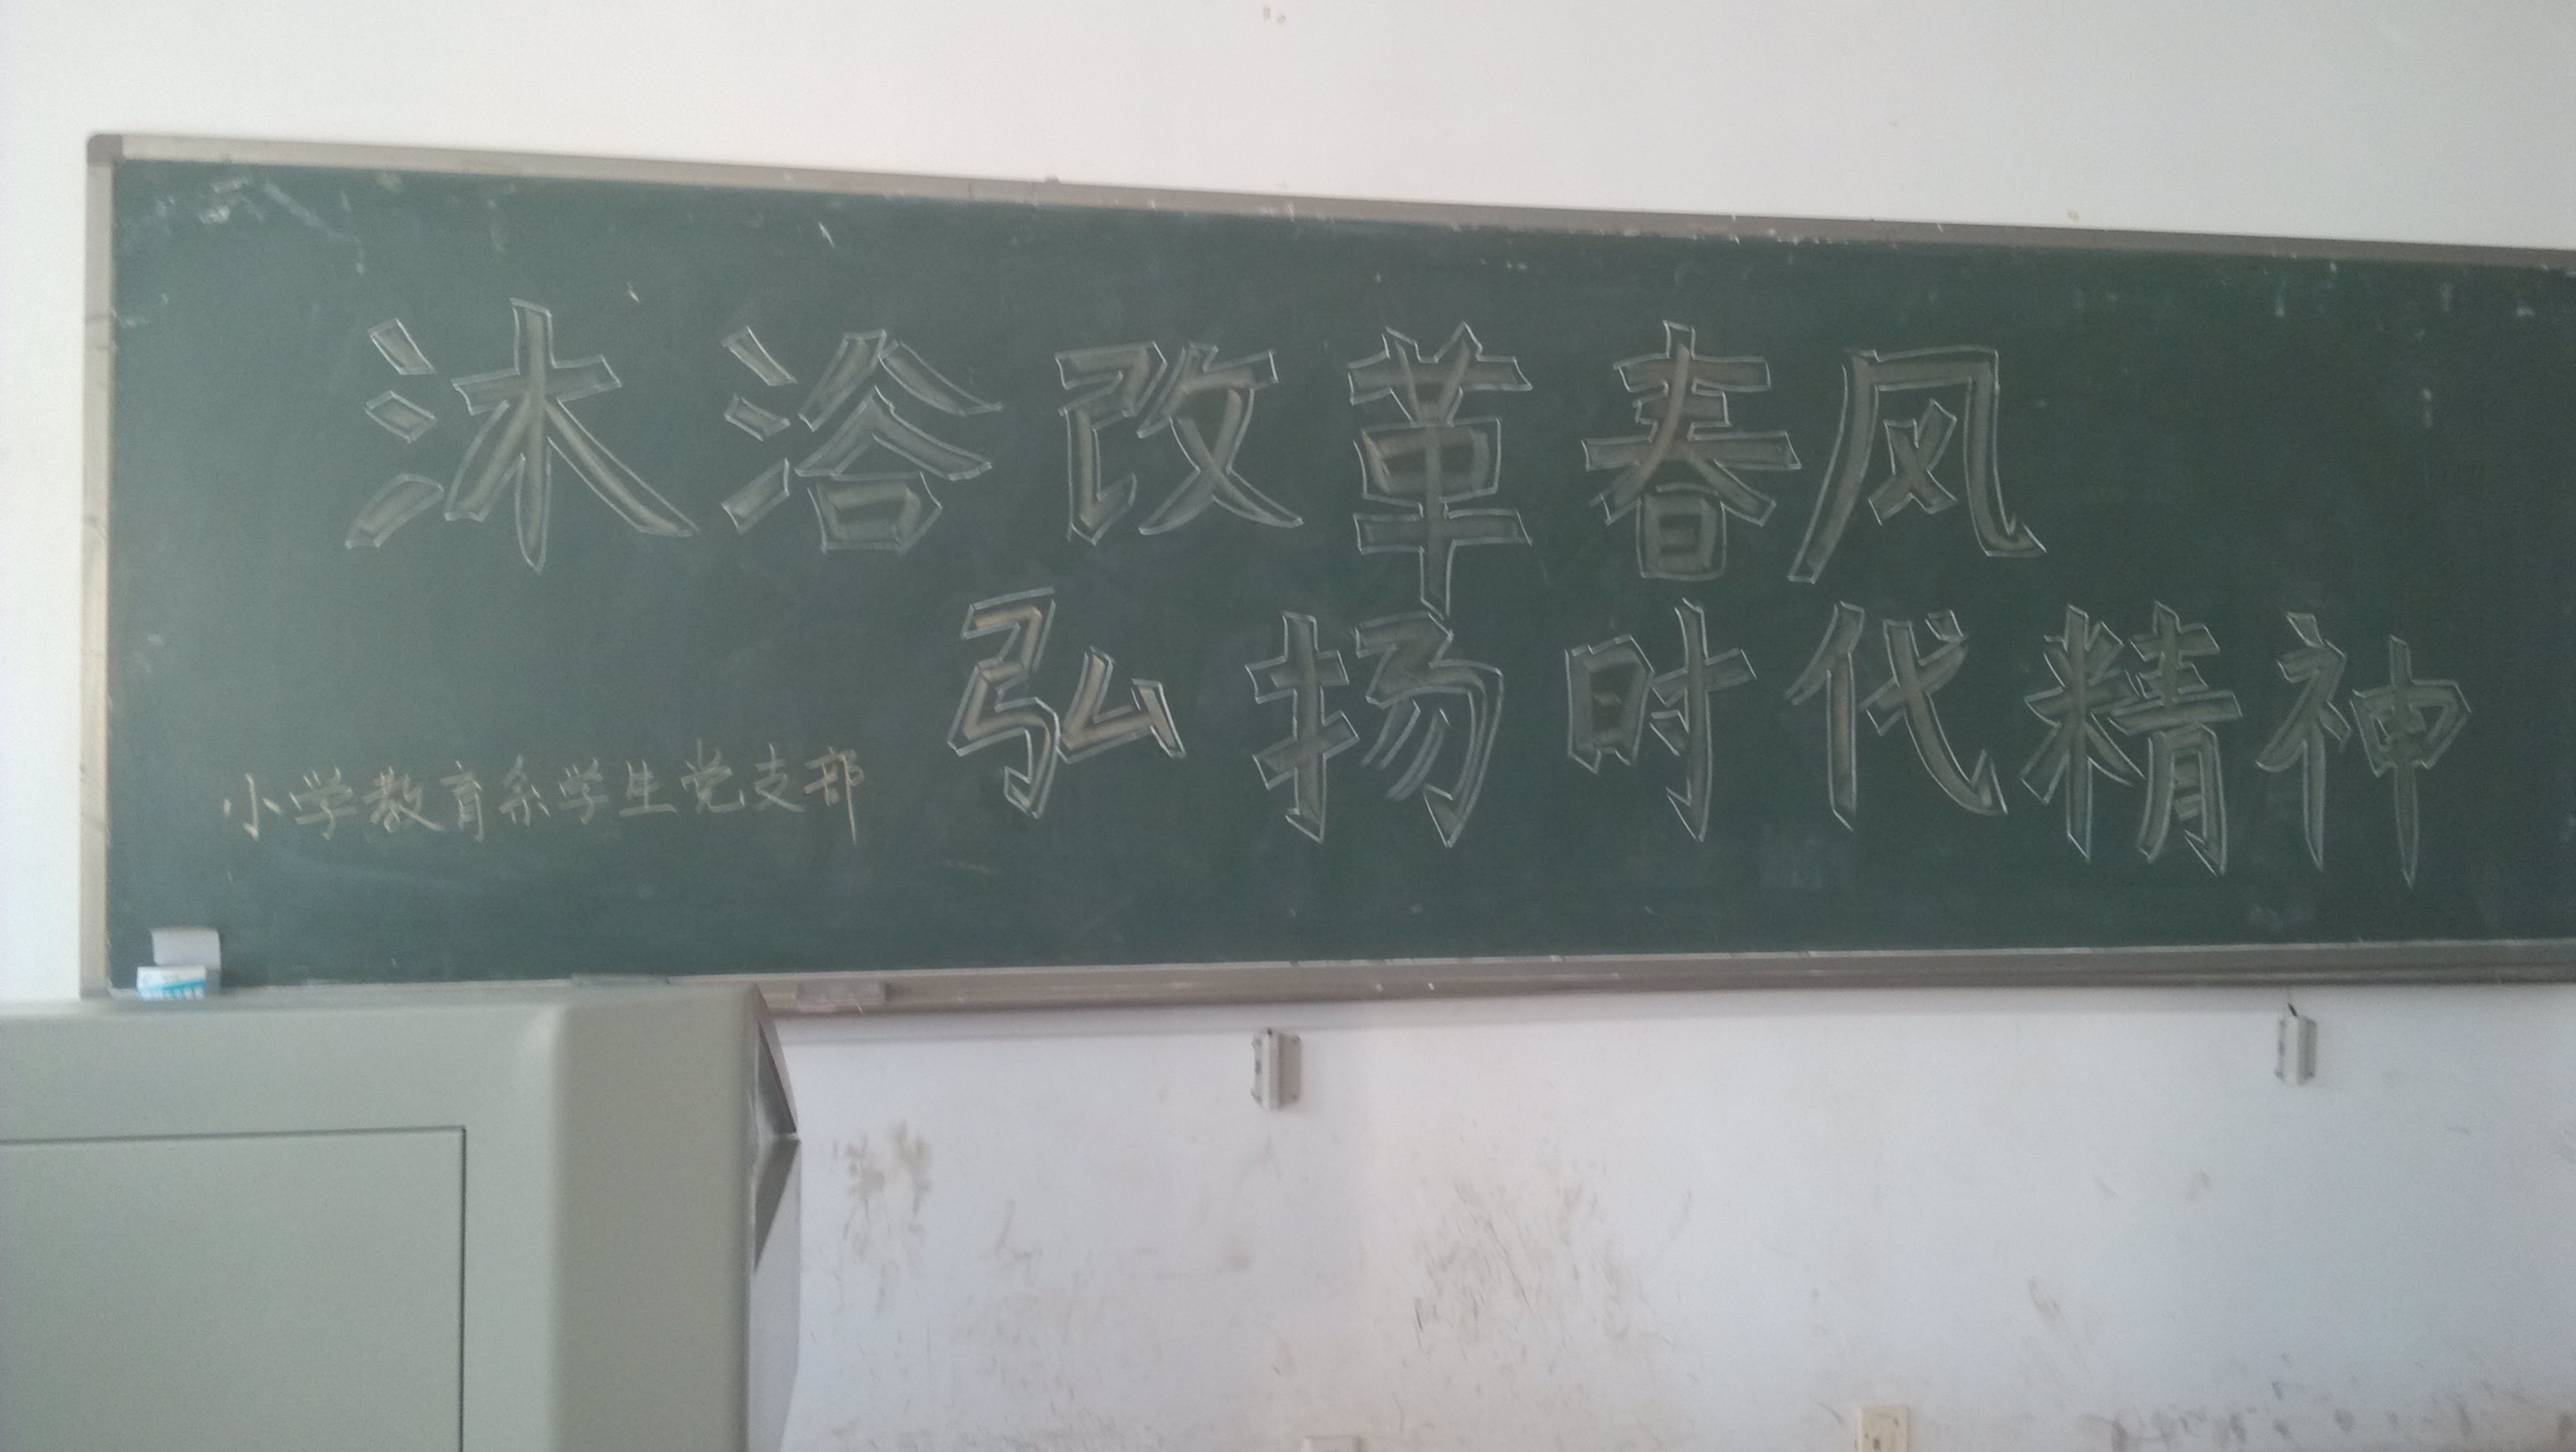 沐浴改革春风
弘扬时代精神
小学教育系学生党支部